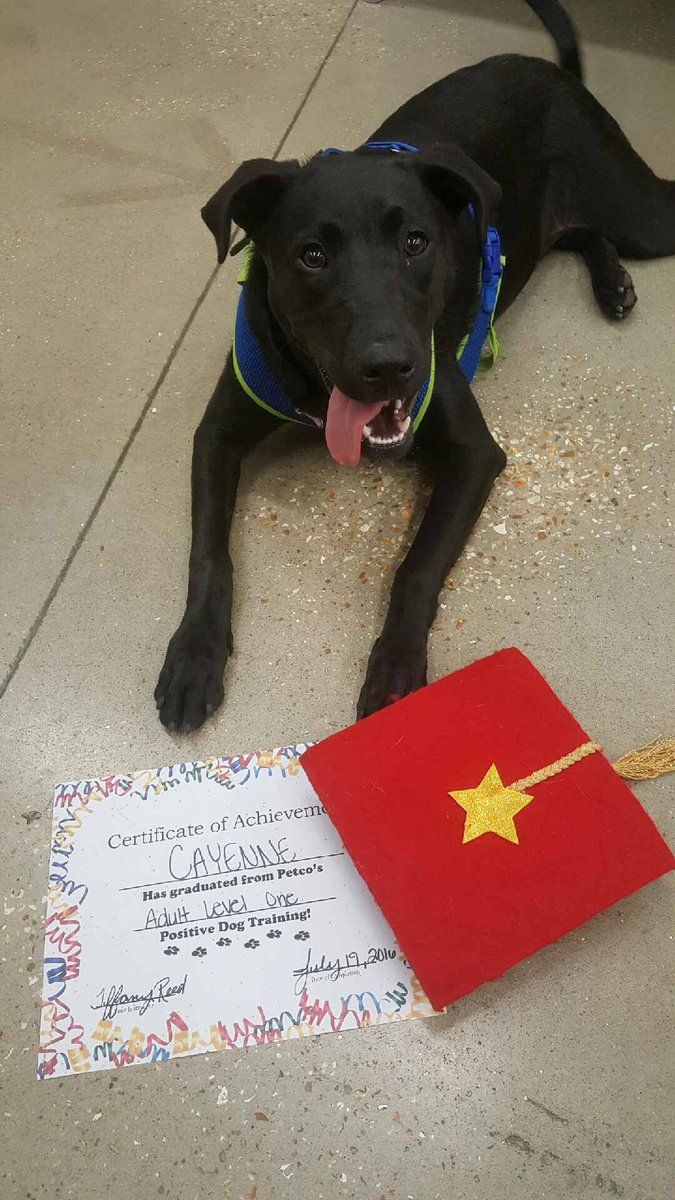 Certificate of Achieveme
CAYENNE
Has graduated from Petco's
Adult Level One
Positive Dog Training!
Tiffany Reed July 19, 2016
Date of Completion